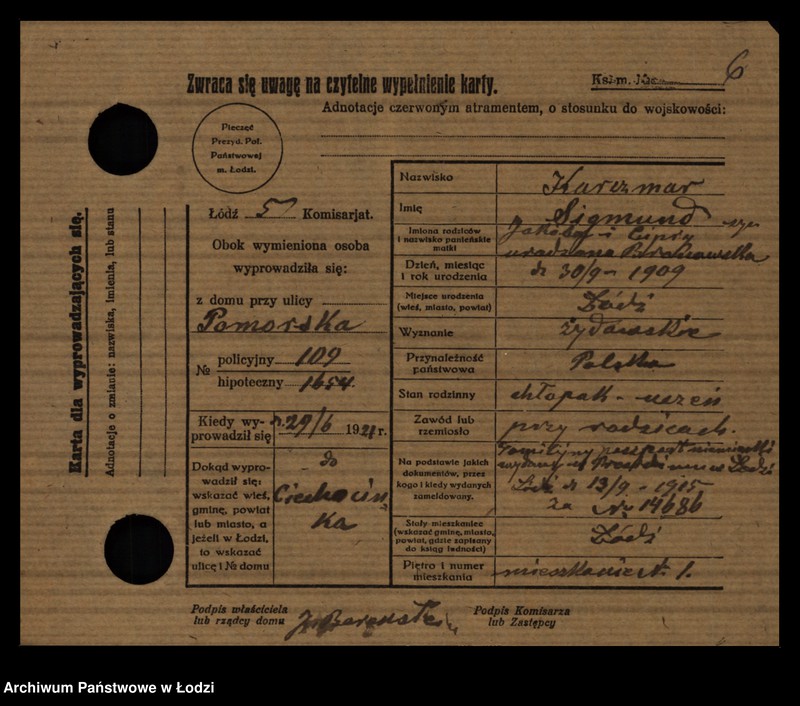 6
Zwraca się uwagę na czytelne wypełnienie karty.
Ks. m.
Adnotacje czerwonym atramentem, o stosunku do wojskowości:
Pieczęć
Prezyd. Pol.
Państwowej
m. Łodzi.
Karta dla wyprowadzających się.
Adnotacje o zmianie: nazwiska, imienia, lub stanu
Łódź 5 Komisarjat.
Obok wymieniona osoba
wyprowadziła się:
z domu przy ulicy
Pomorska
№ policyjny 109
hipoteczny 1654
Kiedy wy-
prowadził się 29/6 1921 r.
Dokąd wypro-
wadził się:
wskazać wieś,
gminę, powiat
lub miasto, a
jeżeli w Łodzi,
to wskazać
ulicę i № domu
do
Ciechocin
ka
Nazwisko Karczmar
Imię Sigmund
Imiona rodziców
i nazwisko panieńskie
matki
Jakoba i Cipry
urodzona
Dzień, miesiąc
i rok urodzenia
d 30/9 - 1909
Miejsce urodzenia
(wieś, miasto, powiat)
Łódź
Wyznanie żydowskie
Przynależność
państwowa
Polska
Stan rodzinny chłopak - uczeń
Zawód lub
rzemiosło
przy rodzicach.
Na podstawie jakich
dokumentów, przez
kogo i kiedy wydanych
zameldowany.
Familijny paszport niemiecki
wydany w w Łodzi
Łódź d 13/9 - 1915
za № 14686
Stały mieszkaniec
(wskazać gminę, miasto,
powiat, gdzie zapisany
do ksiąg ludności)
Łódź
Piętro i numer
mieszkania
mieszkanie № 1.
Podpis właściciela
lub rządcy domu
Podpis Komisarza
lub Zastępcy
Archiwum Państwowe w Łodzi